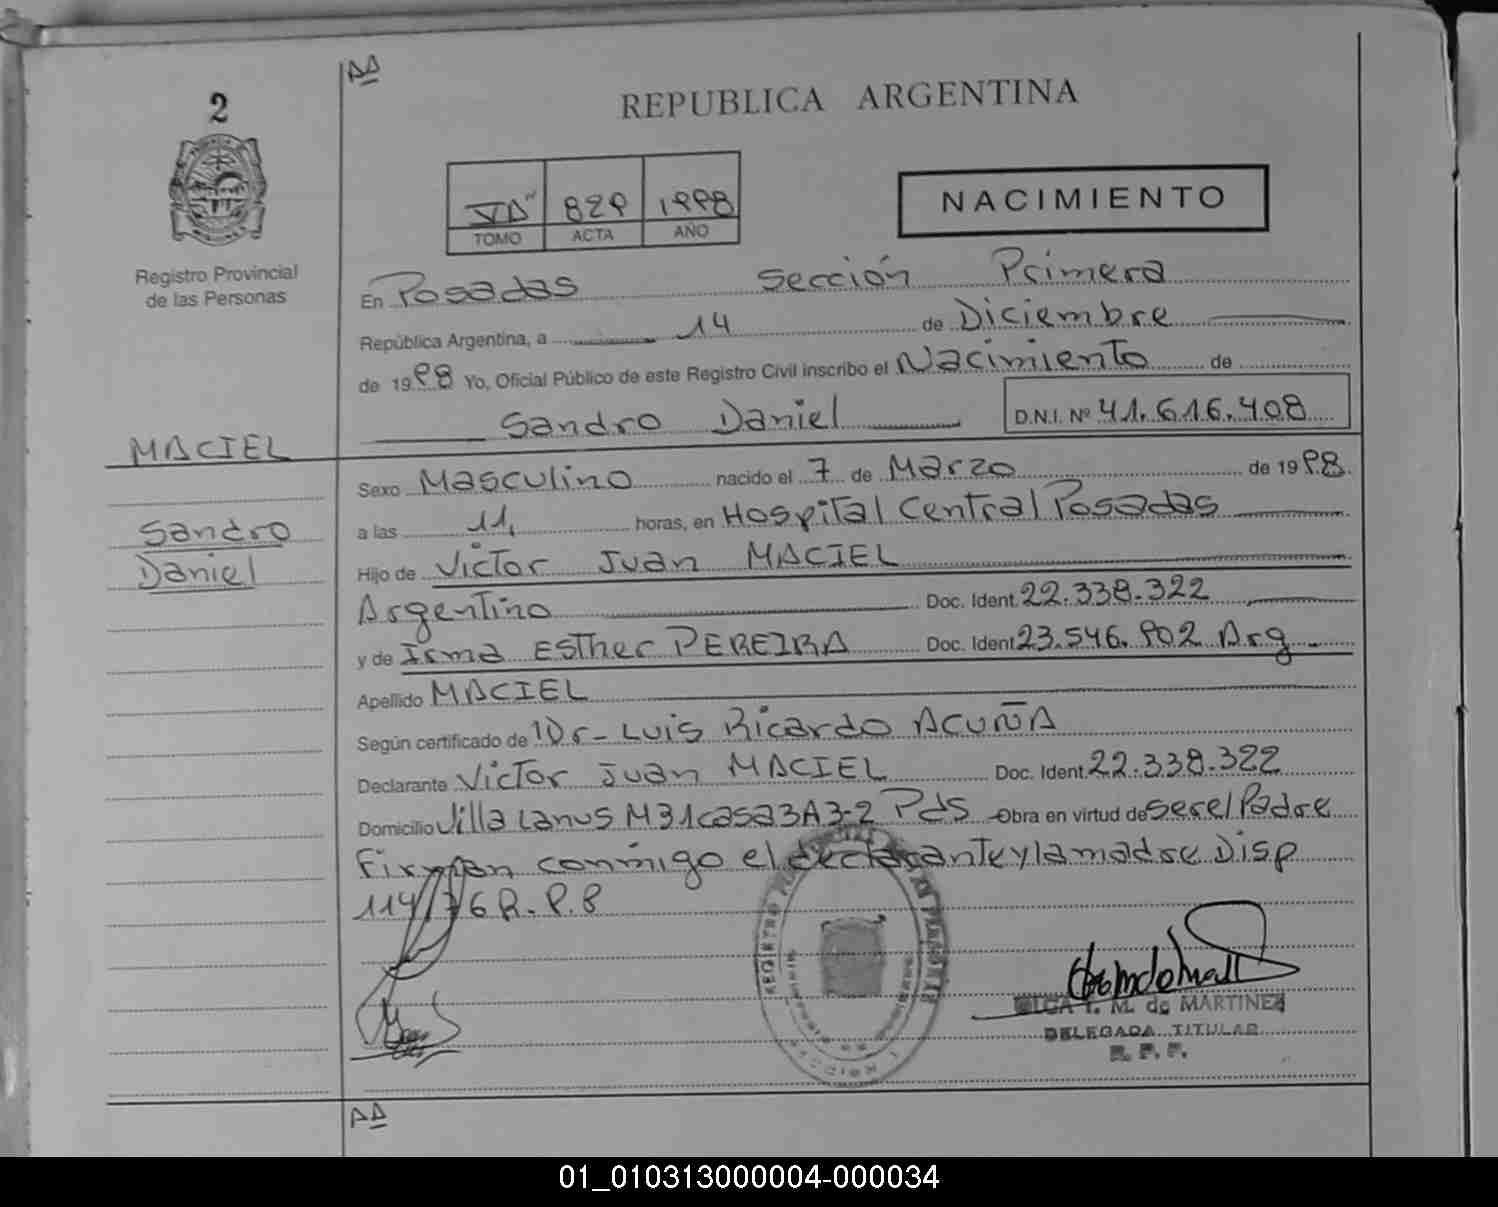 AA
2
REPUBLICA ARGENTINA
Registro Provincial
de las Personas
VA" 829 1998
TOMO ACTA AÑO
NACIMIENTO
En Posadas Sección Primera
República Argentina, a 14 de Diciembre
de 1998 Yo, Oficial Público de este Registro Civil inscribo el Nacimiento de
Sandro Daniel D.N.I. Nº 41.616.408
MACIEL
Sandro
Daniel
Sexo Masculino nacido el 7 de Marzo de 1998.
a las 11, horas, en Hospital Central Posadas
Hijo de Victor Juan MACIEL
Argentino Doc. Ident. 22.338.322
y de Irma Esther PEREIRA Doc. Ident 23.546.902 Arg
Apellido MACIEL
Según certificado de Dr- Luis Ricardo ACUÑA
Declarante Victor Juan MACIEL Doc. Ident. 22.338.322
Domicilio Villa Lanus M31casa3A3-2 Pds Obra en virtud de ser el Padre
Firman conmigo el declarante y la madre Disp
114/76 R.P.P
REGISTRO
OLGA T. M. de MARTINEZ
DELEGADA TITULAR
R. P. P.
AA
01_010313000004-000034